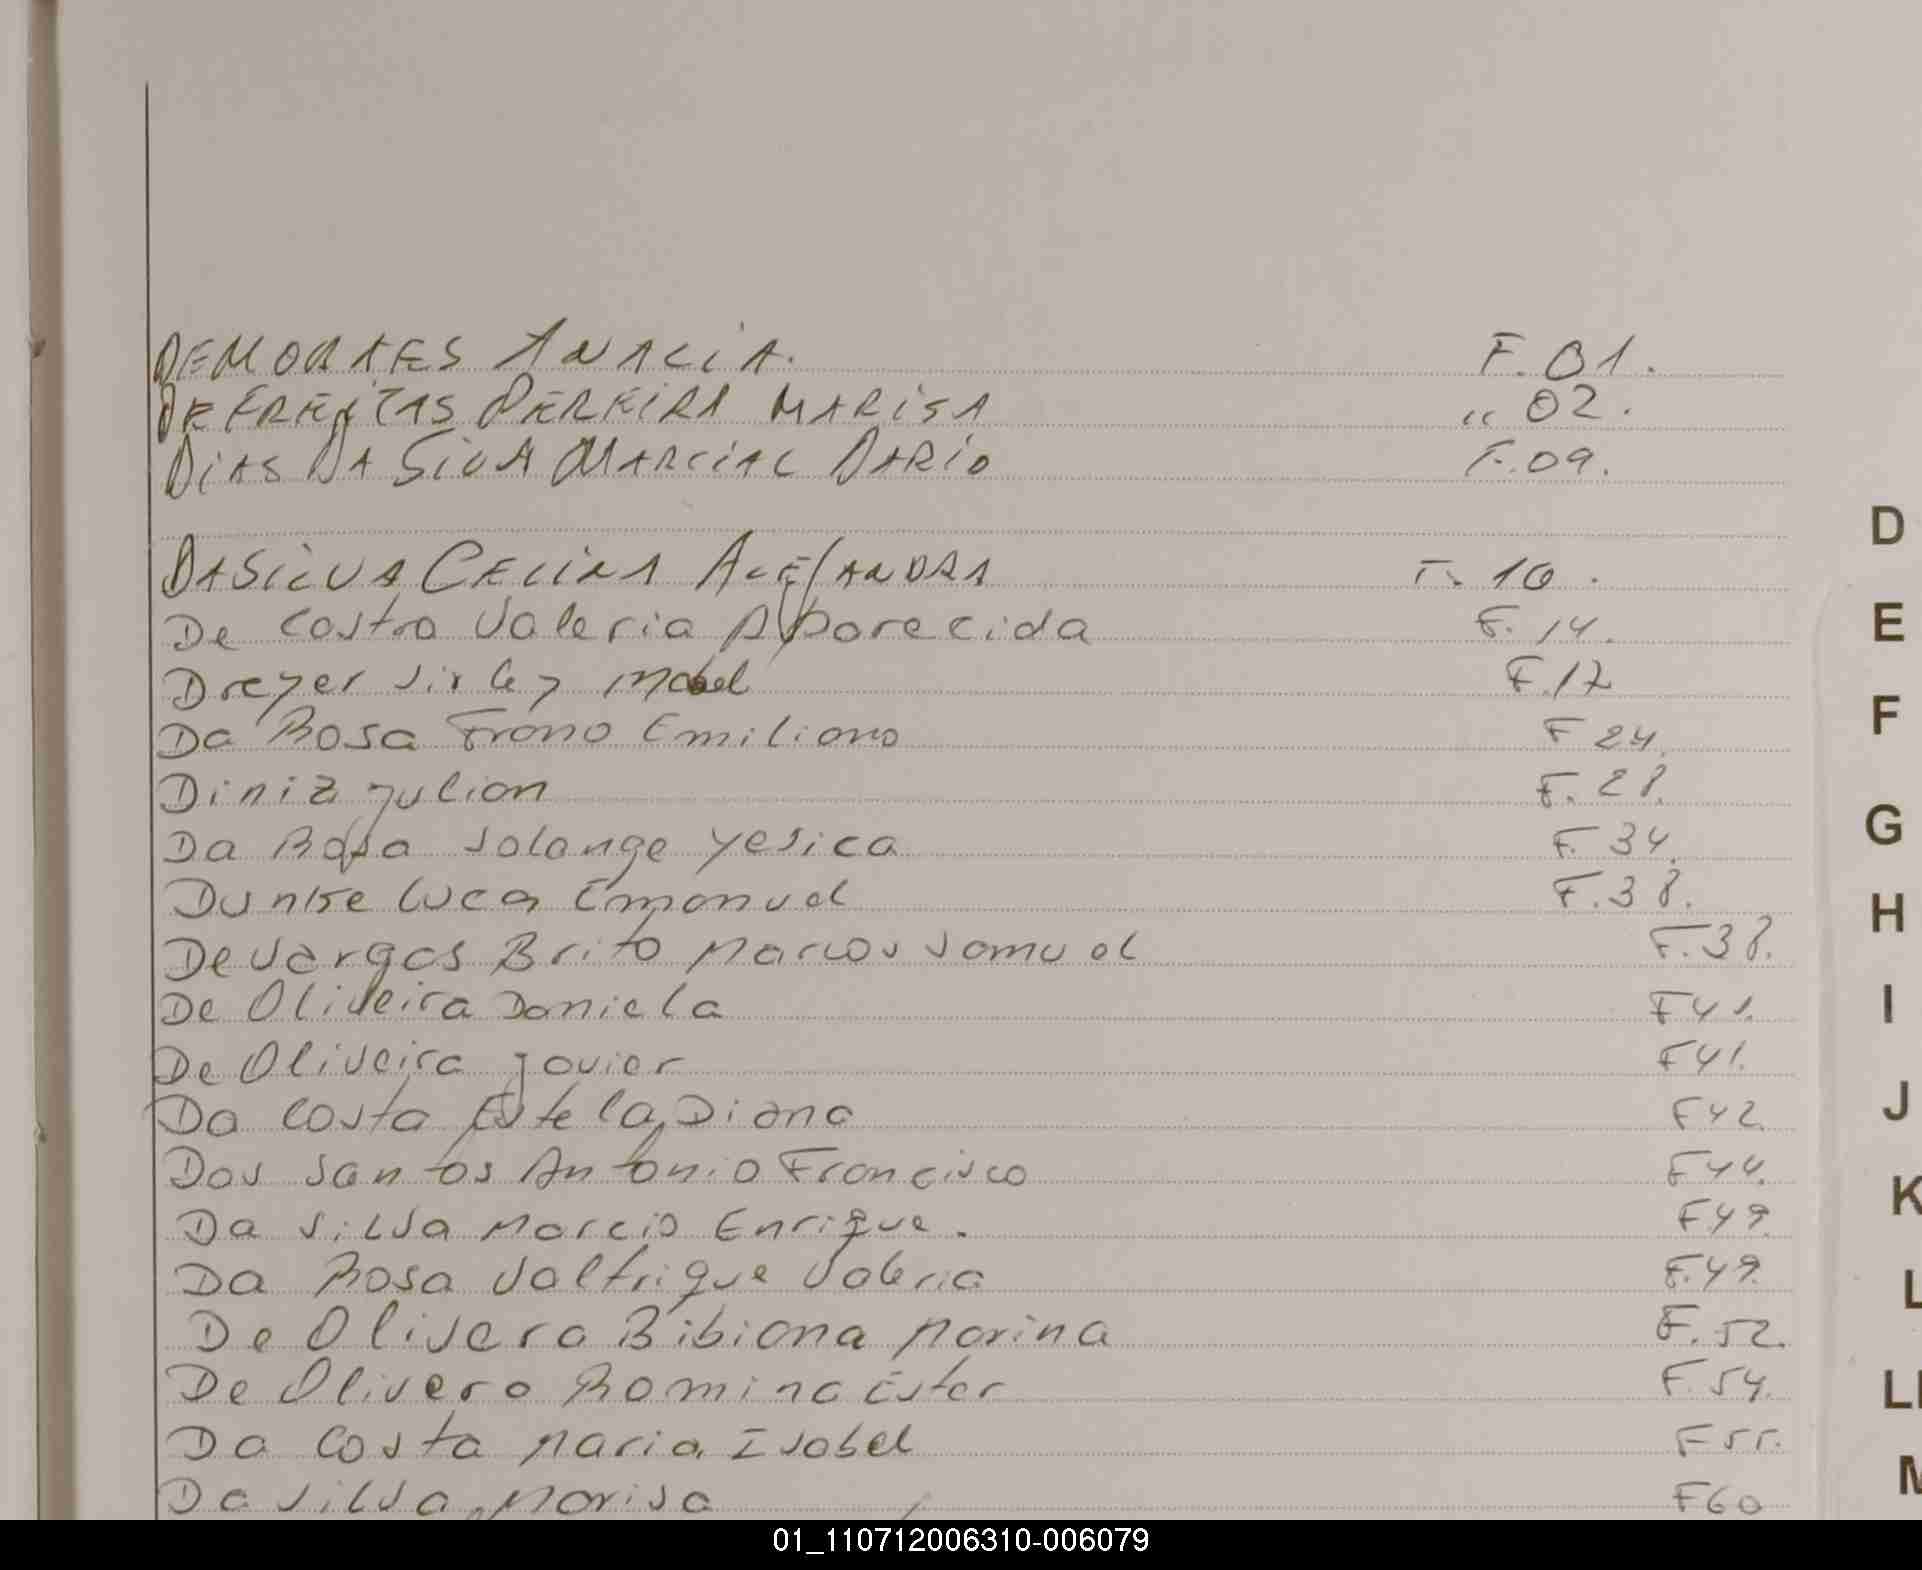 DEMORAES ANALIA. F.01.
DE FREITAS PEREIRA MARISA " 02.
DIAS DA SILVA MARCIAL DARIO F.09.
DASILVA CELINA ALEJANDRA F. 10.
De Castro Valeria Aparecida F. 14.
Dreyer Sirley Mabel F.17
Da Rosa Franco Emiliano F 24.
Diniz Julian F. 28.
Da Rosa Solange Yesica F. 34.
Dunke Luca Emanuel F.38.
De Vargas Brito Marcos Samuel F.38.
De Oliveira Daniela F41.
De Oliveira Javier F41.
Da Costa Estela Diana F42.
Dos Santos Antonio Francisco F44.
Da Silva Marcio Enrique. F49.
Da Rosa Valeria F.49.
De Olivera Bibiana Marina F.52.
De Olivera Romina Ester F.54.
Da Costa Maria Isabel F55.
Da Silva, Marisa F60
D
E
F
G
H
I
J
K
L
LL
M
01_110712006310-006079